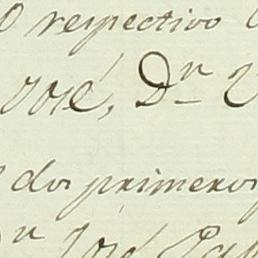 respectivo
José, Dn
dos primeros
José